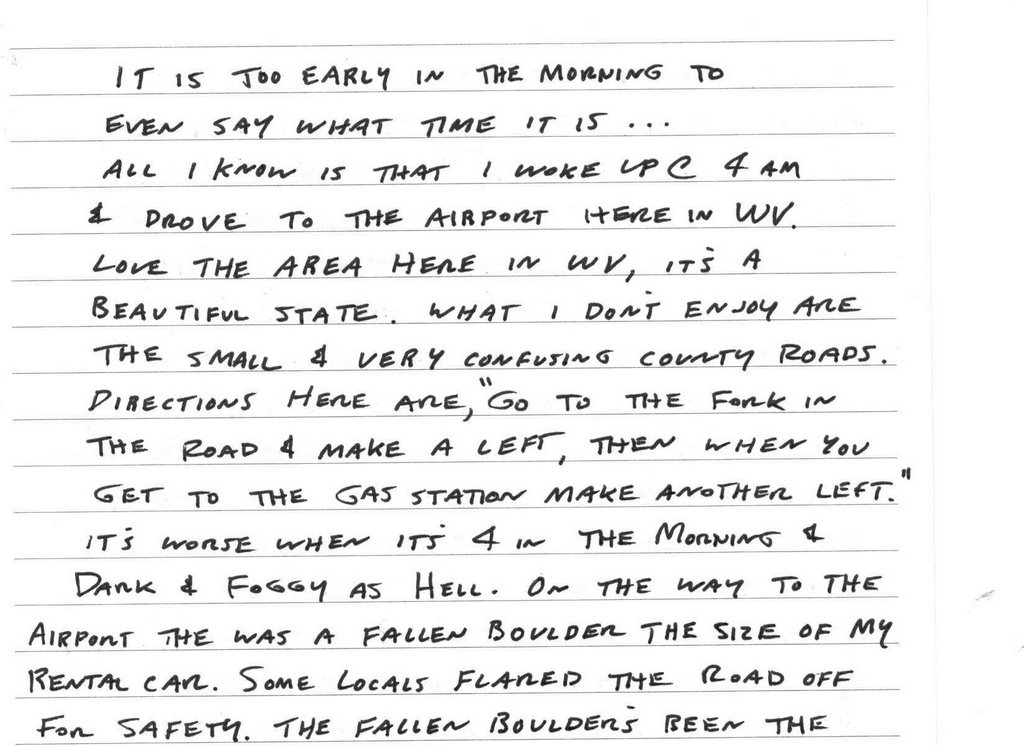 IT IS TOO EARLY IN THE MORNING TO
EVEN SAY WHAT TIME IT IS ...
ALL I KNOW IS THAT I WOKE UP @ 4 AM
& DROVE TO THE AIRPORT HERE IN WV.
LOVE THE AREA HERE IN WV, IT'S A
BEAUTIFUL STATE. WHAT I DON'T ENJOY ARE
THE SMALL & VERY CONFUSING COUNTY ROADS.
DIRECTIONS HERE ARE, "GO TO THE FORK IN
THE ROAD & MAKE A LEFT, THEN WHEN YOU
GET TO THE GAS STATION MAKE ANOTHER LEFT."
IT'S WORSE WHEN IT'S 4 IN THE MORNING &
DARK & FOGGY AS HELL. ON THE WAY TO THE
AIRPORT THE WAS A FALLEN BOULDER THE SIZE OF MY
RENTAL CAR. SOME LOCALS FLARED THE ROAD OFF
FOR SAFETY. THE FALLEN BOULDER'S BEEN THE